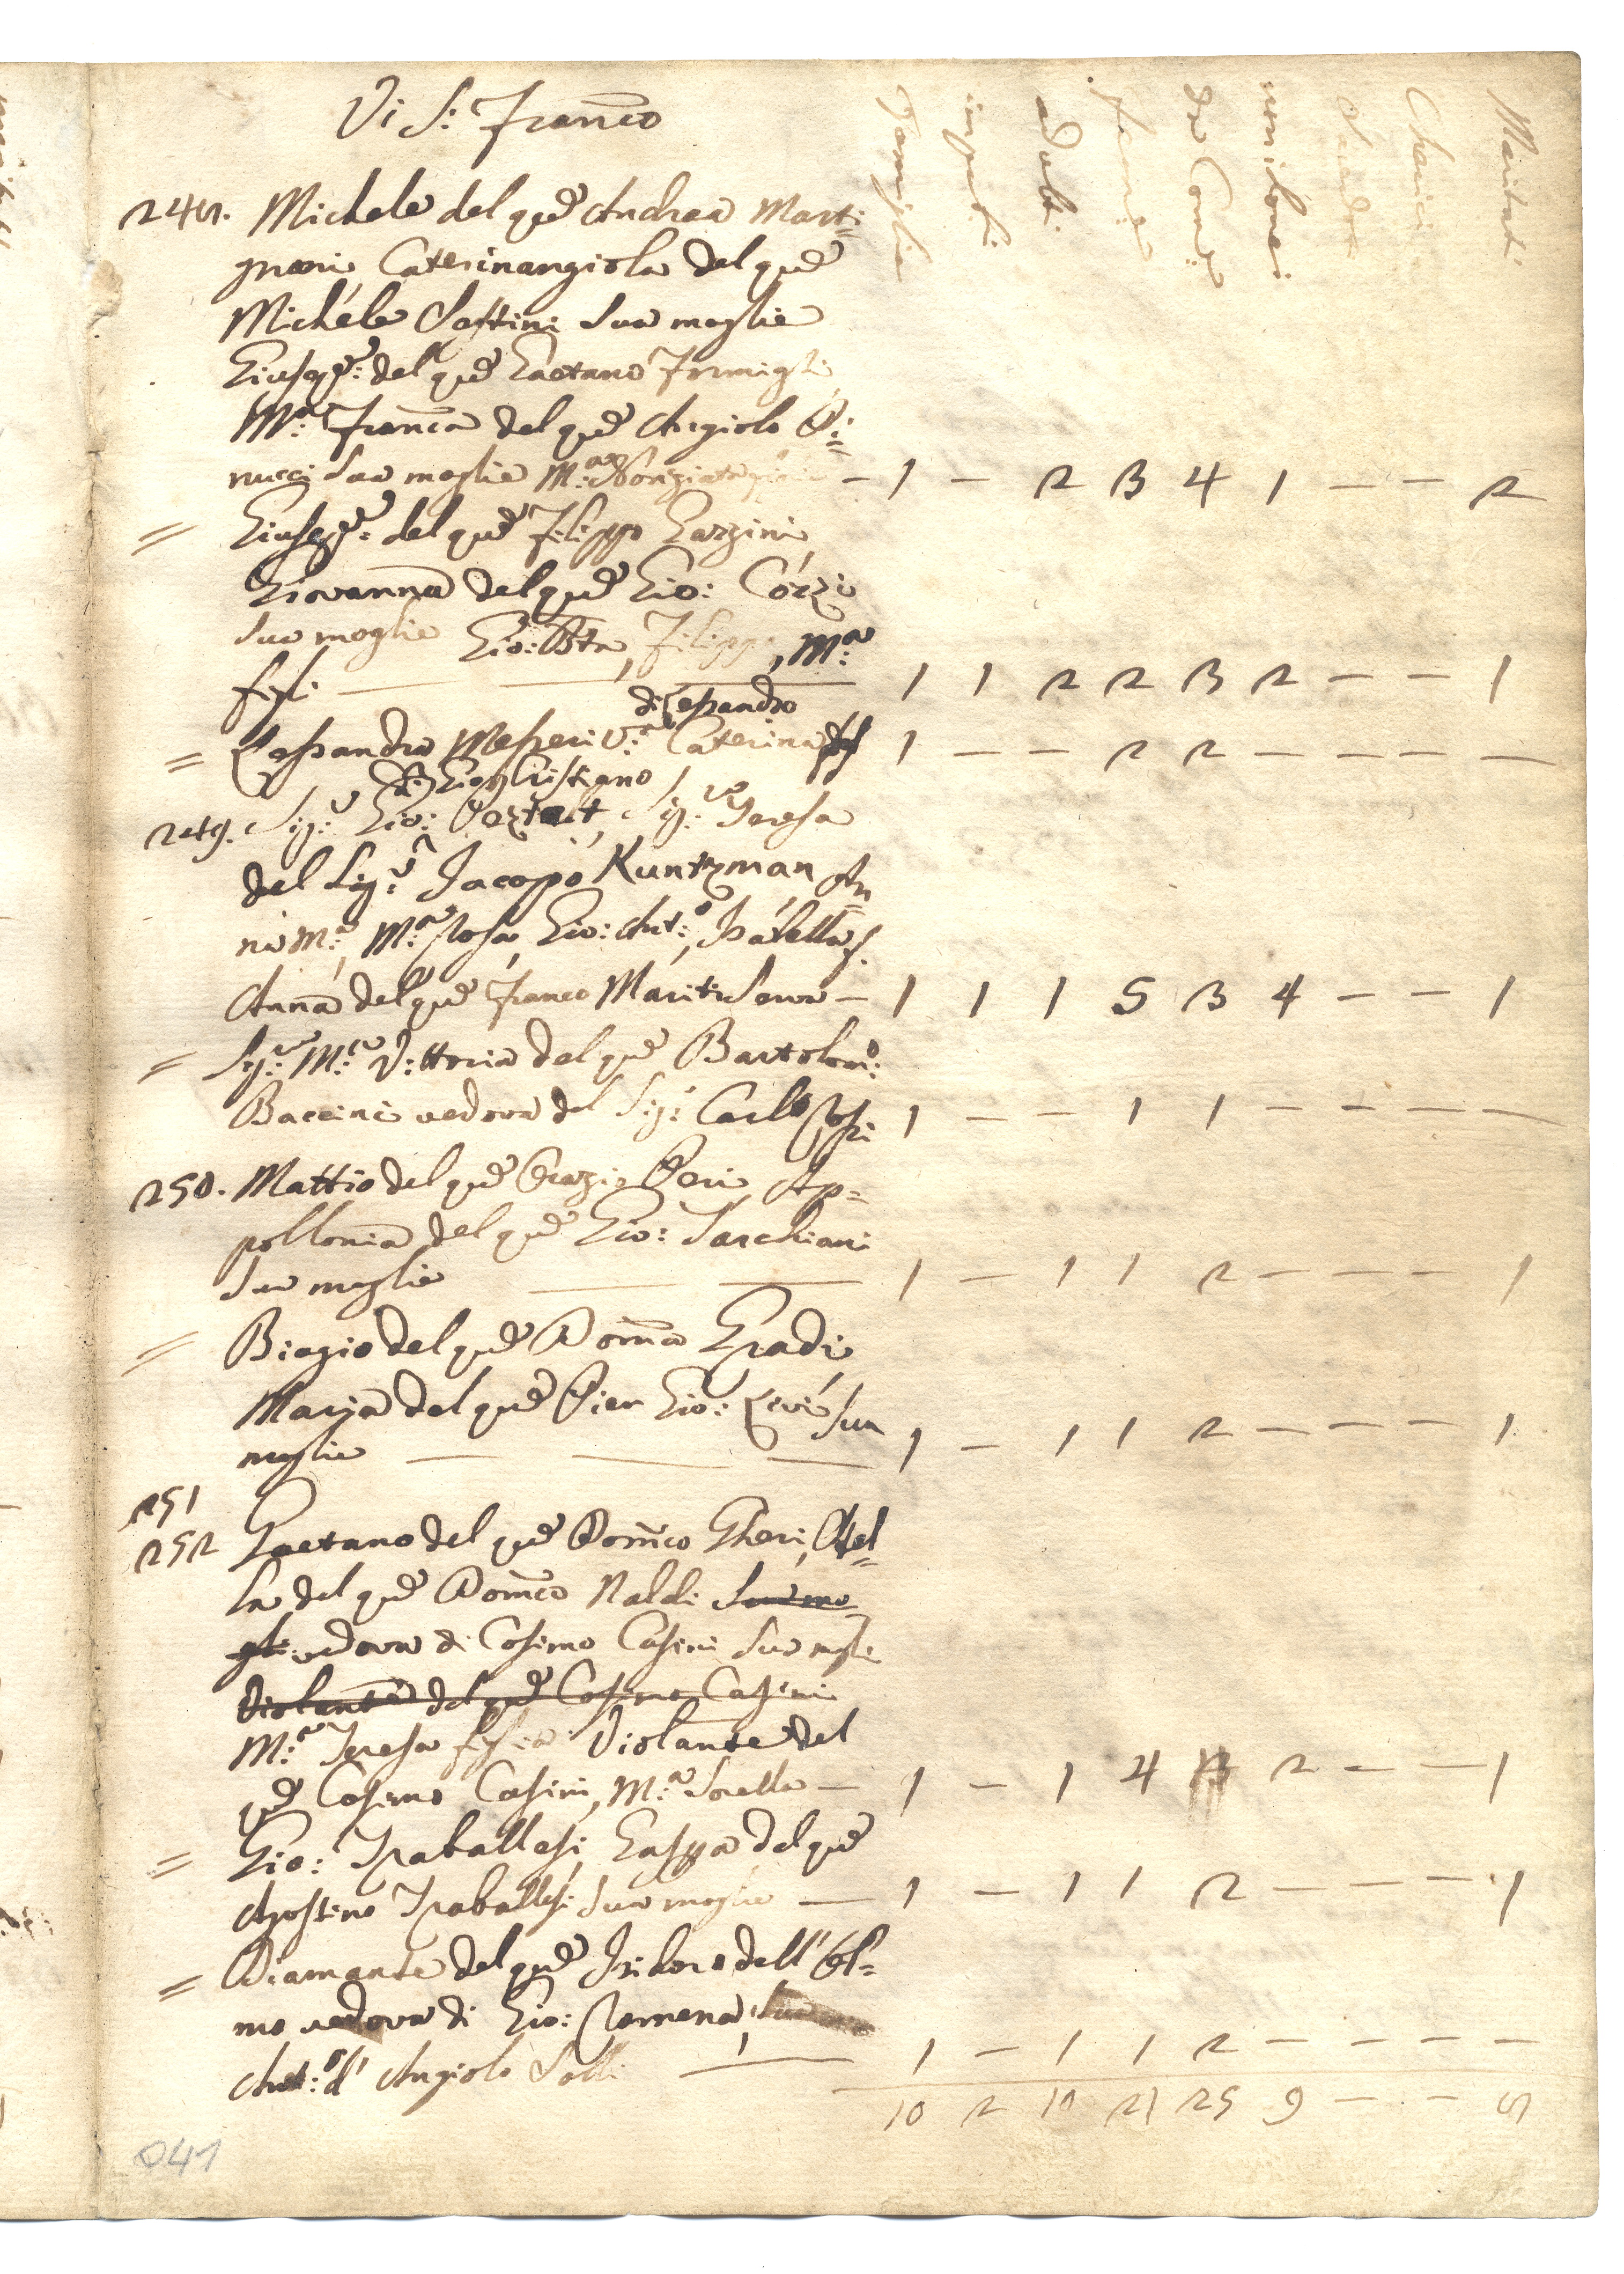 Di S: Franco
Famiglie
impub:
adulti
Femine
da Com:
non da Com:
Cherici
Maritati
248. Michele del qm Andrea Marti=
gnoni Caterinangiola del qm
Michele Sastini Sua moglie
Giusepe: del qm Gaetano Formigli
Ma: Franca del qm Angiolo Pi=
nucci Sua moglie Ma: – 1 – 2 3 4 1 – – 2
= Giusepe: del qm Filippo Gazzini
Giovanna del qm Gio: Cozzi
Sua moglie Gio: Bta, Filippo, Ma:
figli — 1 1 2 2 3 2 – – 1
di Lessandro
= Lessandra Messeri Va: Caterina 1 – – 2 2 – – – –
di Gio: Cristiano
249. Sigr: Gio: Sigra: Teresa
del Sigr: Jacopo Kuntzman An
na Ma:, Ma: Rosa, Gio: Anto:, Isabella f.
Anna del qm Franco Mariti Serva – 1 1 1 5 3 4 – – 1
= Sigra: Ma: Vittoria del qm Bartolomo:
Baccini vedova del Sigr: Carlo Rossi 1 – – 1 1 – – – –
250. Mattio del qm Orazio Peri Ap=
pollonia del qm Gio: Sarchiani
Sua moglie — 1 – 1 1 2 – – – 1
= Biagio del qm Domca Gradi
Maria del qm Pier Gio: Livi Sua
moglie — 1 – 1 1 2 – – – 1
251
252 Gaetano del qm Domco Gheri, Stel=
la del qm Domco Naldi Sua mo
glie vedova di Cosimo Casini Sua mogle
Violante del qm Cosimo Casini
Ma: Teresa figlia Violante del
qm Cosimo Casini, Ma: Sorella – 1 – 1 4 2 – – 1
= Gio: Traballesi, Gasppa del qm
Agostino Traballesi Sua moglie — 1 – 1 1 2 – – – 1
= Diamante del qm Isidoro dell'Ol=
mo vedova di Gio: Romena,
Anto: d'Angiolo Solli — 1 – 1 1 2 – – – –
10 2 10 21 25 9 – – 8
041